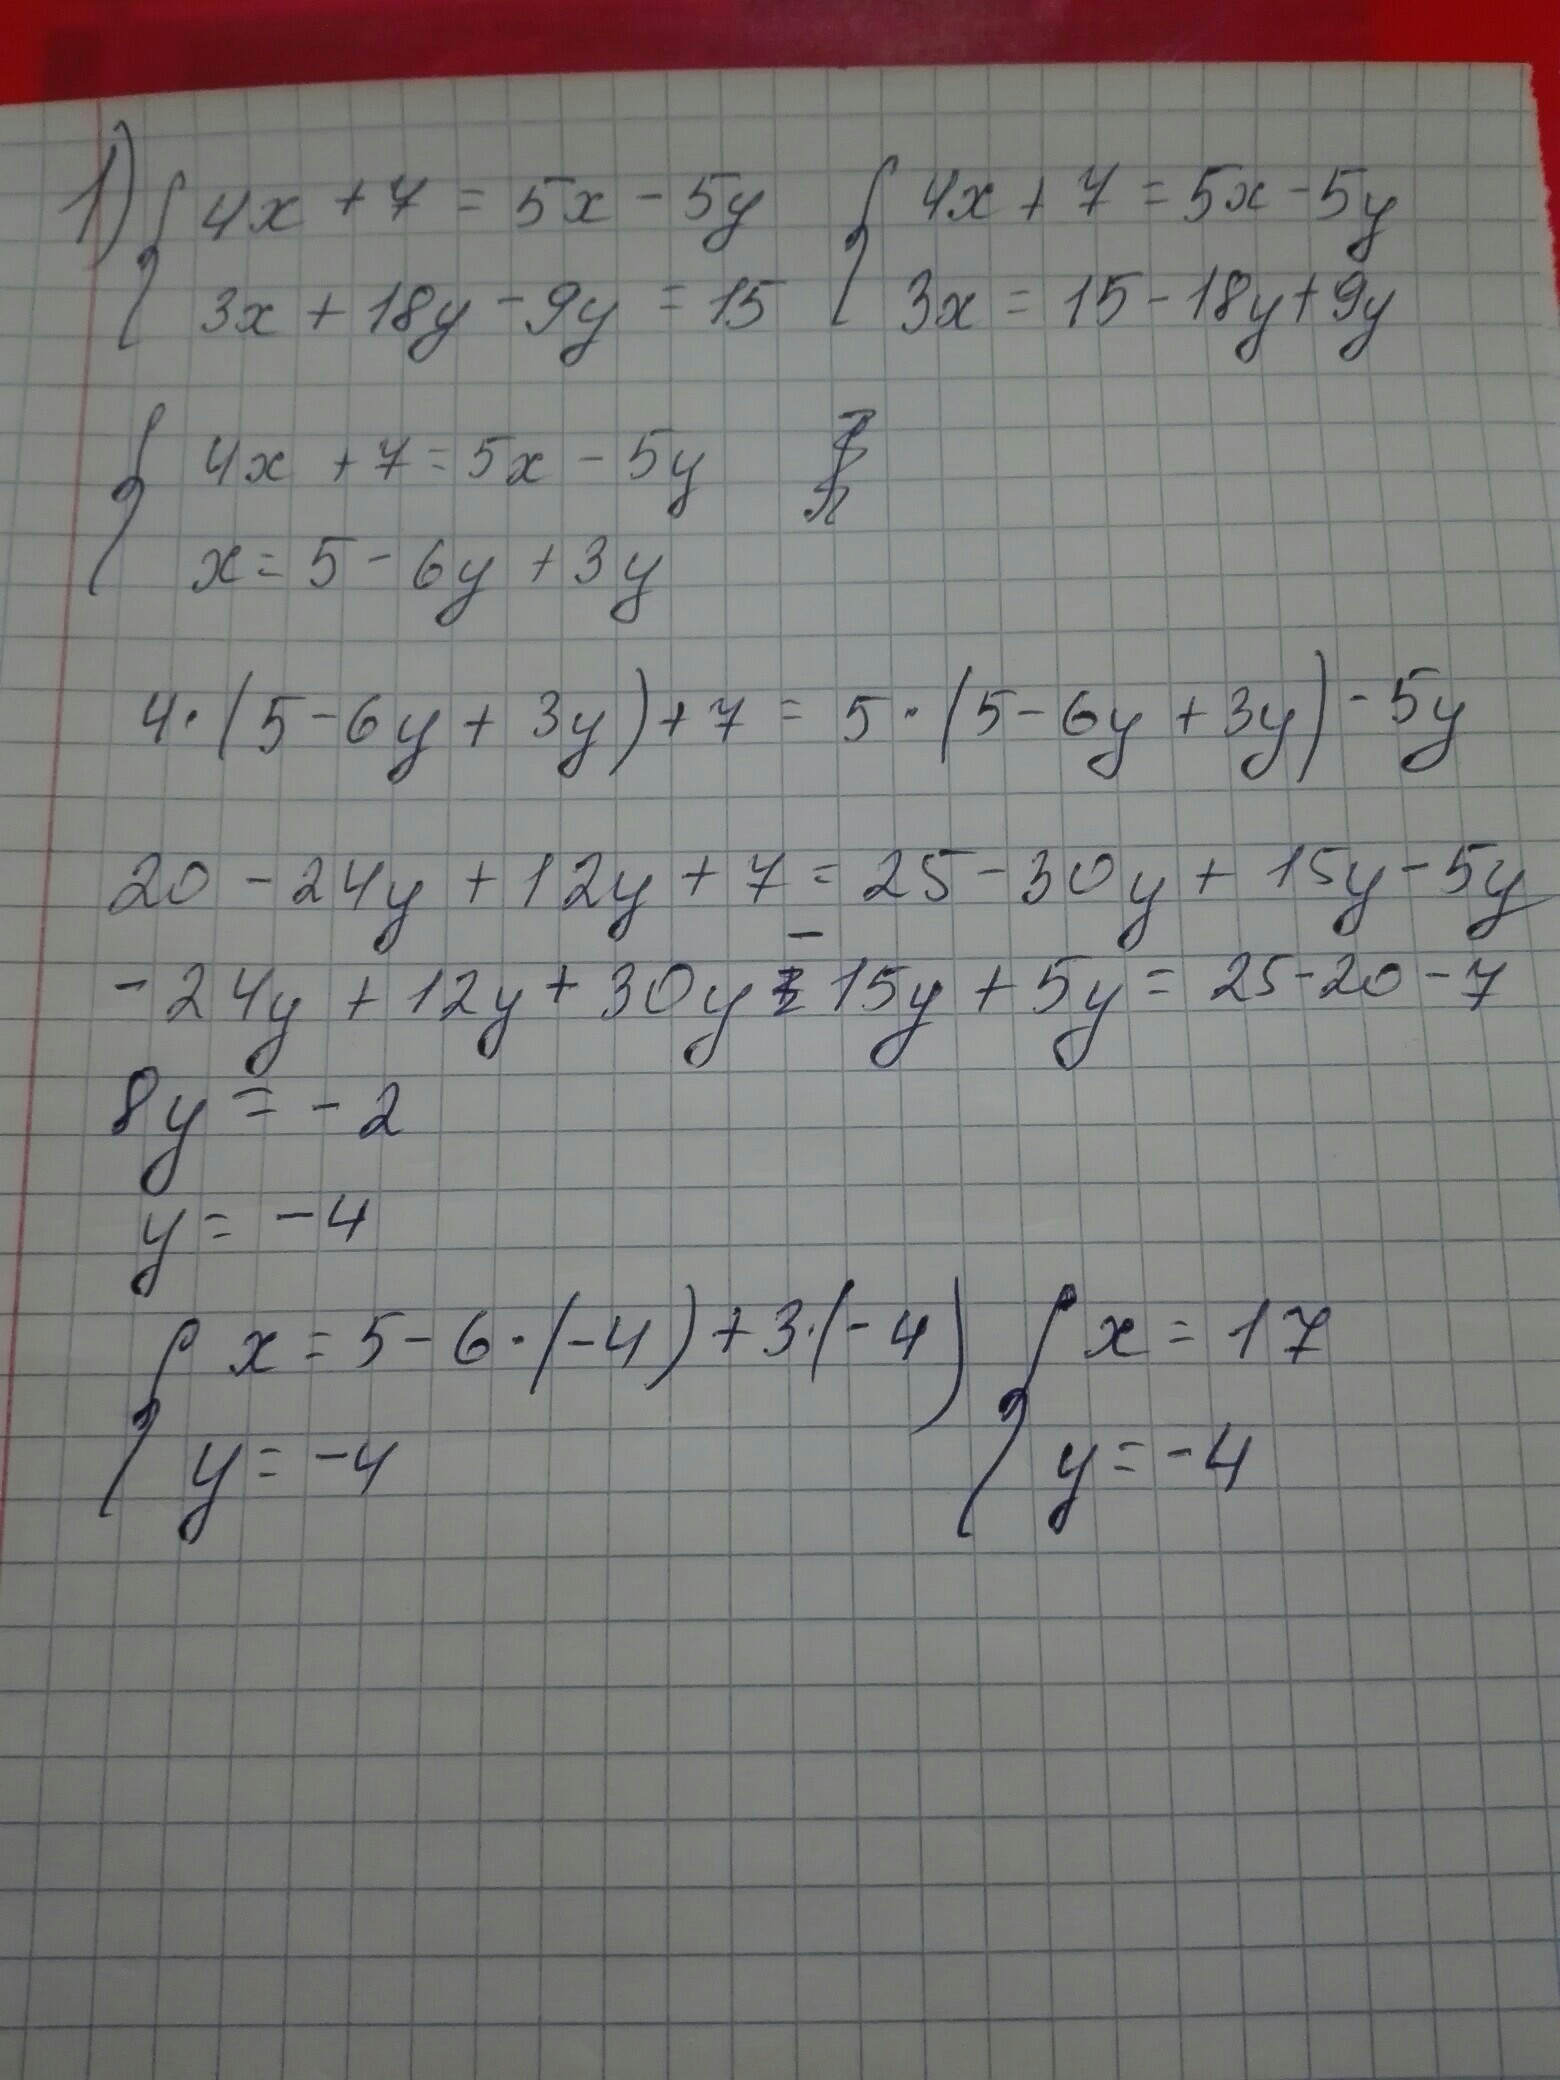 1) { 4x + 7 = 5x - 5y { 4x + 7 = 5x - 5y
3x + 18y - 9y = 15 3x = 15 - 18y + 9y
{ 4x + 7 = 5x - 5y
x = 5 - 6y + 3y
4·(5 - 6y + 3y) + 7 = 5·(5 - 6y + 3y) - 5y
20 - 24y + 12y + 7 = 25 - 30y + 15y - 5y
- 24y + 12y + 30y - 15y + 5y = 25 - 20 - 7
8y = - 2
y = - 4
{ x = 5 - 6·(-4) + 3·(-4) { x = 17
y = -4 y = -4